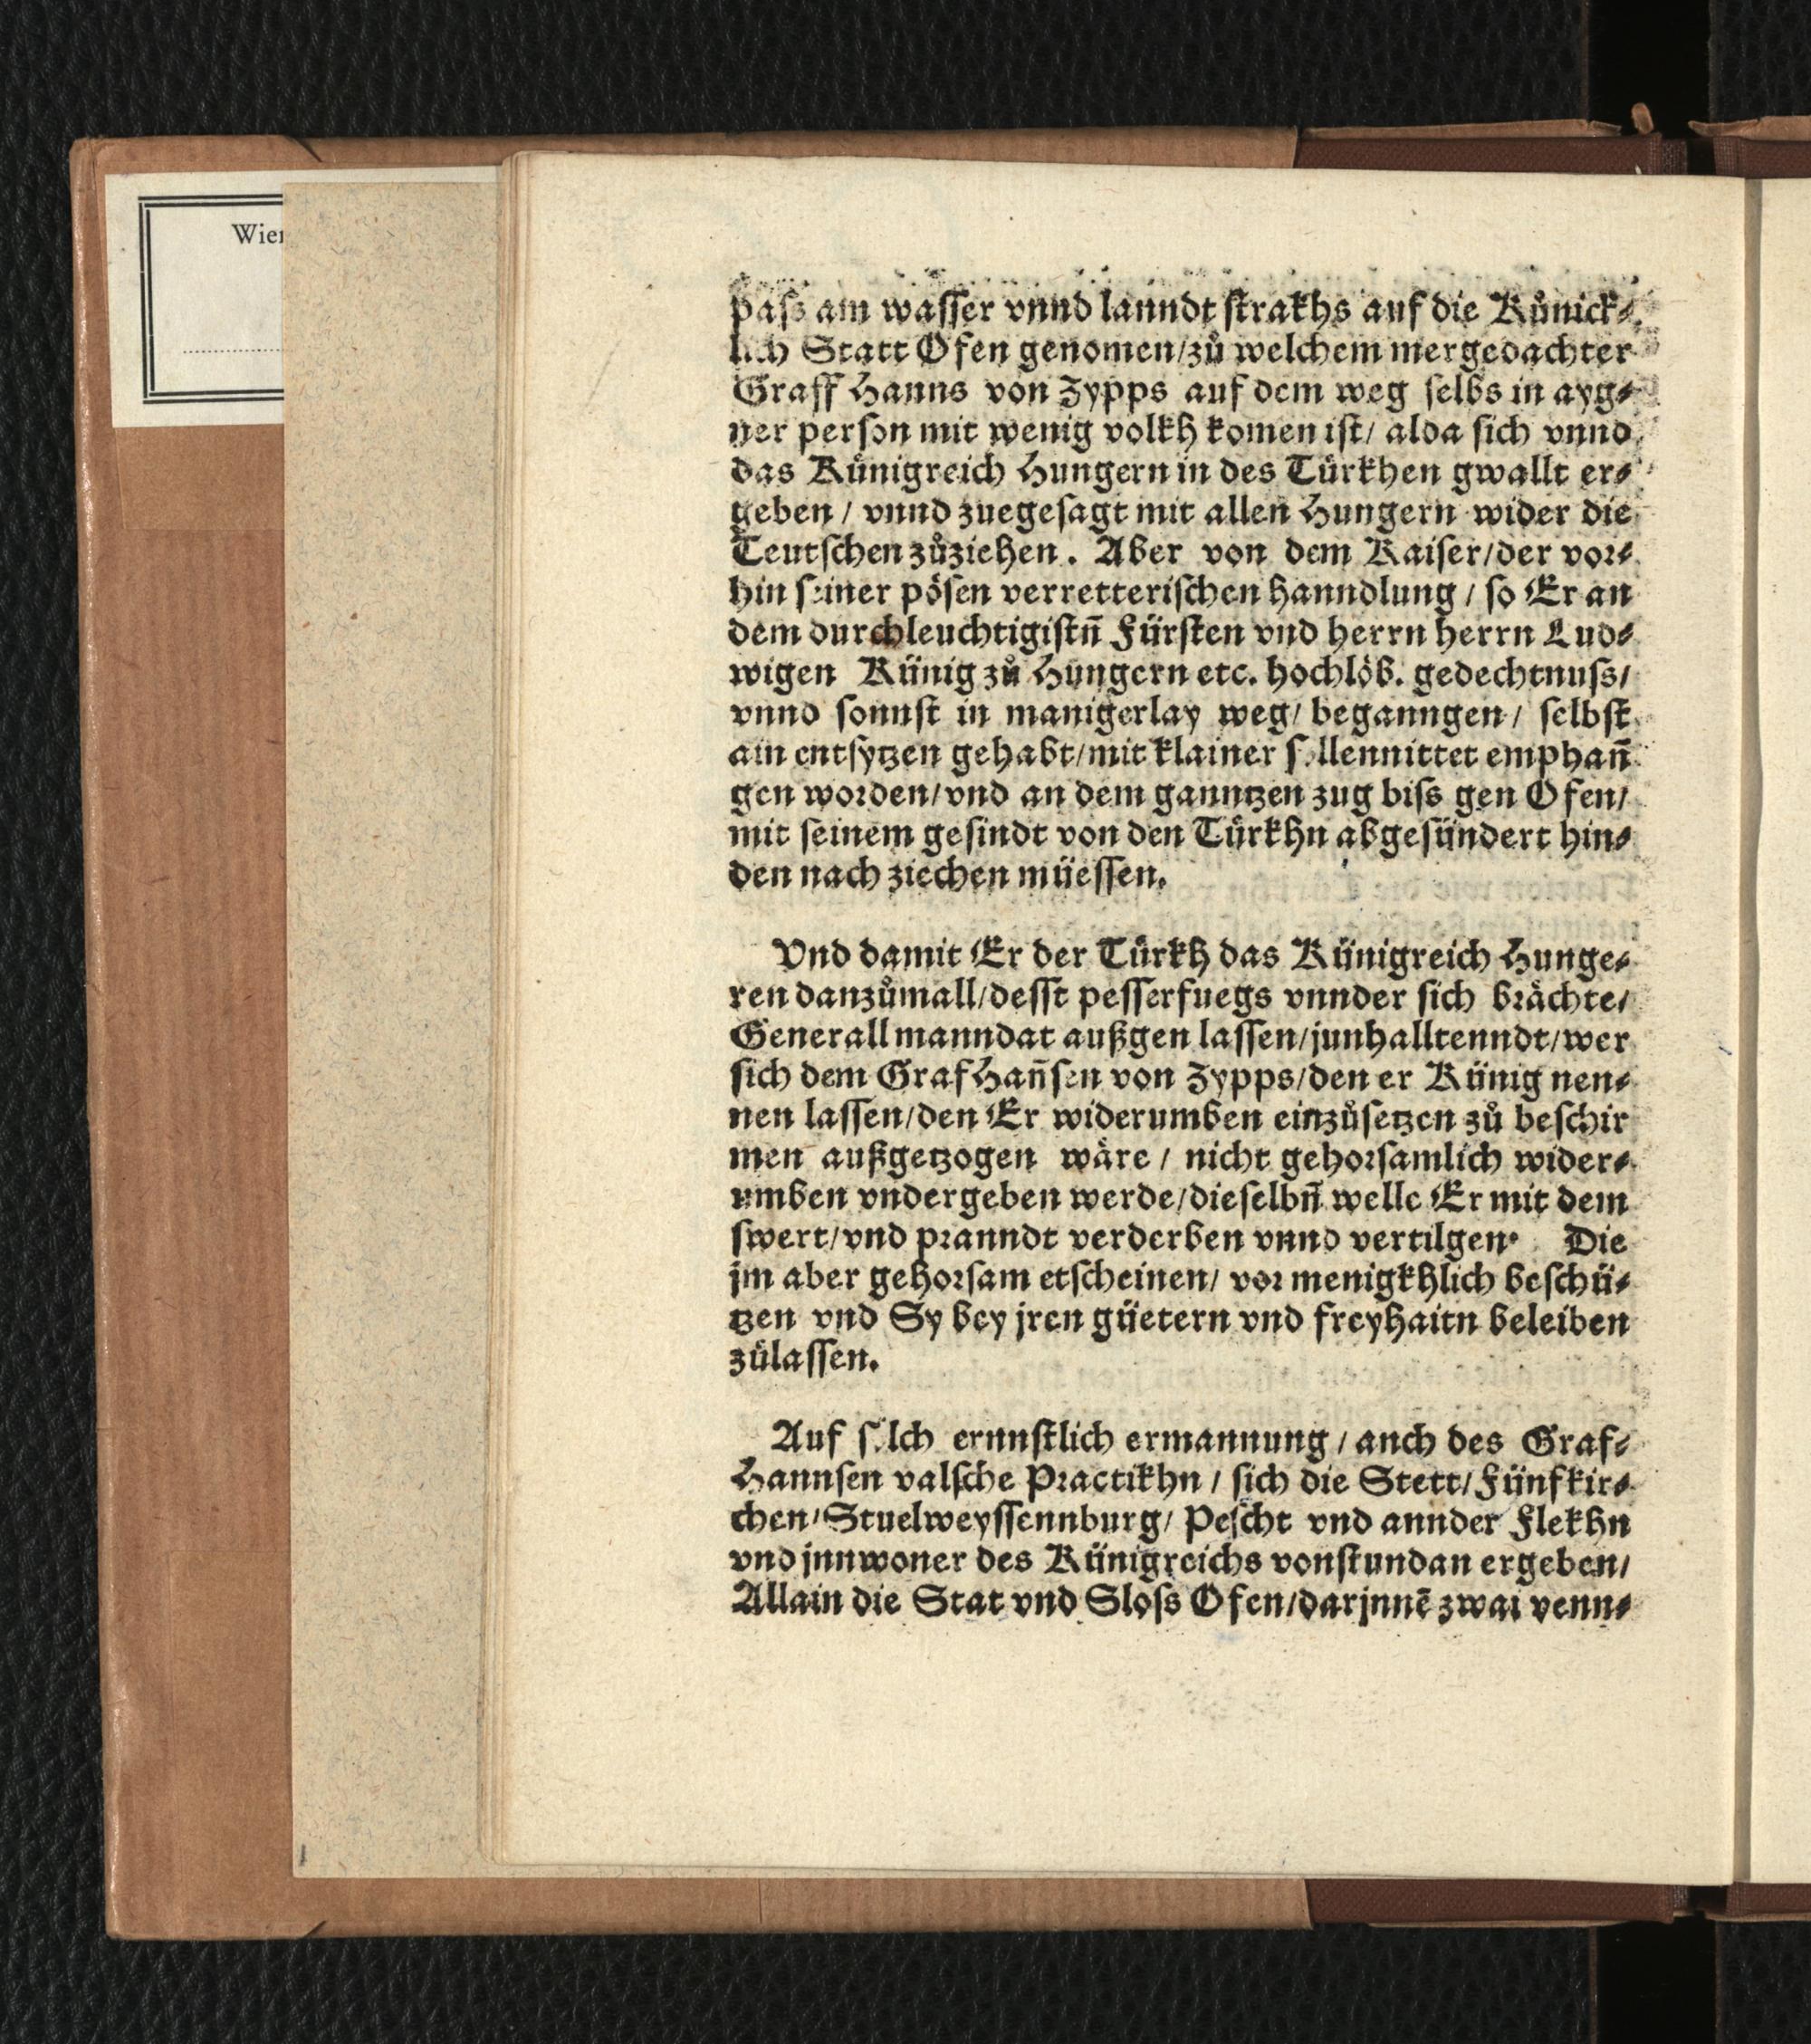 Wien
paſs am waſſer vnnd lanndt ſtrakhs auf die Künick⸗
lich Statt Ofen genomen/zů welchem mergedachter
Graff Hanns von Zypps auf dem weg ſelbs in ayg⸗
ner perſon mit wenig volkh komen iſt/ alda ſich vnnd
das Künigreich Hungern in des Türkhen gwallt er⸗
geben / vnnd zuegeſagt mit allen Hungern wider die
Teutſchen zůziehen. Aber von dem Kaiſer/der vor⸗
hin ſeiner pöſen verretteriſchen hanndlung / ſo Er an
dem durchleuchtigiſtn̄ Fürſten vnd herrn herrn Lud⸗
wigen Künig zů Hungern etc. hochlöb. gedechtnuſs/
vnnd ſonnſt in manigerlay weg/ beganngen / ſelbſt
ain entſytzen gehabt/mit klainer ſollennittet emphan̄
gen worden/vnd an dem ganntzen zug biſs gen Ofen/
mit ſeinem geſindt von den Türkhn abgeſündert hin⸗
den nach ziechen müeſſen.
Vnd damit Er der Türkh das Künigreich Hunge⸗
ren danzůmall/deſſt peſſerfuegs vnnder ſich brächte/
Generall manndat außgen laſſen/junhalltenndt/wer
ſich dem Graf Han̄ſen von Zypps/den er Künig nen⸗
nen laſſen/den Er widerumben einzůſetzen zů beſchir
men außgetzogen wäre / nicht gehorſamlich wider⸗
umben vndergeben werde/dieſelbn̄ welle Er mit dem
ſwert/vnd pranndt verderben vnnd vertilgen. Die
jm aber gehorſam etſcheinen/ vor menigkhlich beſchü⸗
tzen vnd Sy bey jren güetern vnd freyhaitn beleiben
zülaſſen.
Auf ſolch ernnſtlich ermannung / auch des Graf⸗
Hannſen valſche Practikhn / ſich die Stett/Fünfkir⸗
chen/Stuelweyſſennburg/ Peſcht vnd annder Flekhn
vnd jnnwoner des Künigreichs vonſtundan ergeben/
Allain die Stat vnd Sloſs Ofen/darjnnē zwai venn⸗